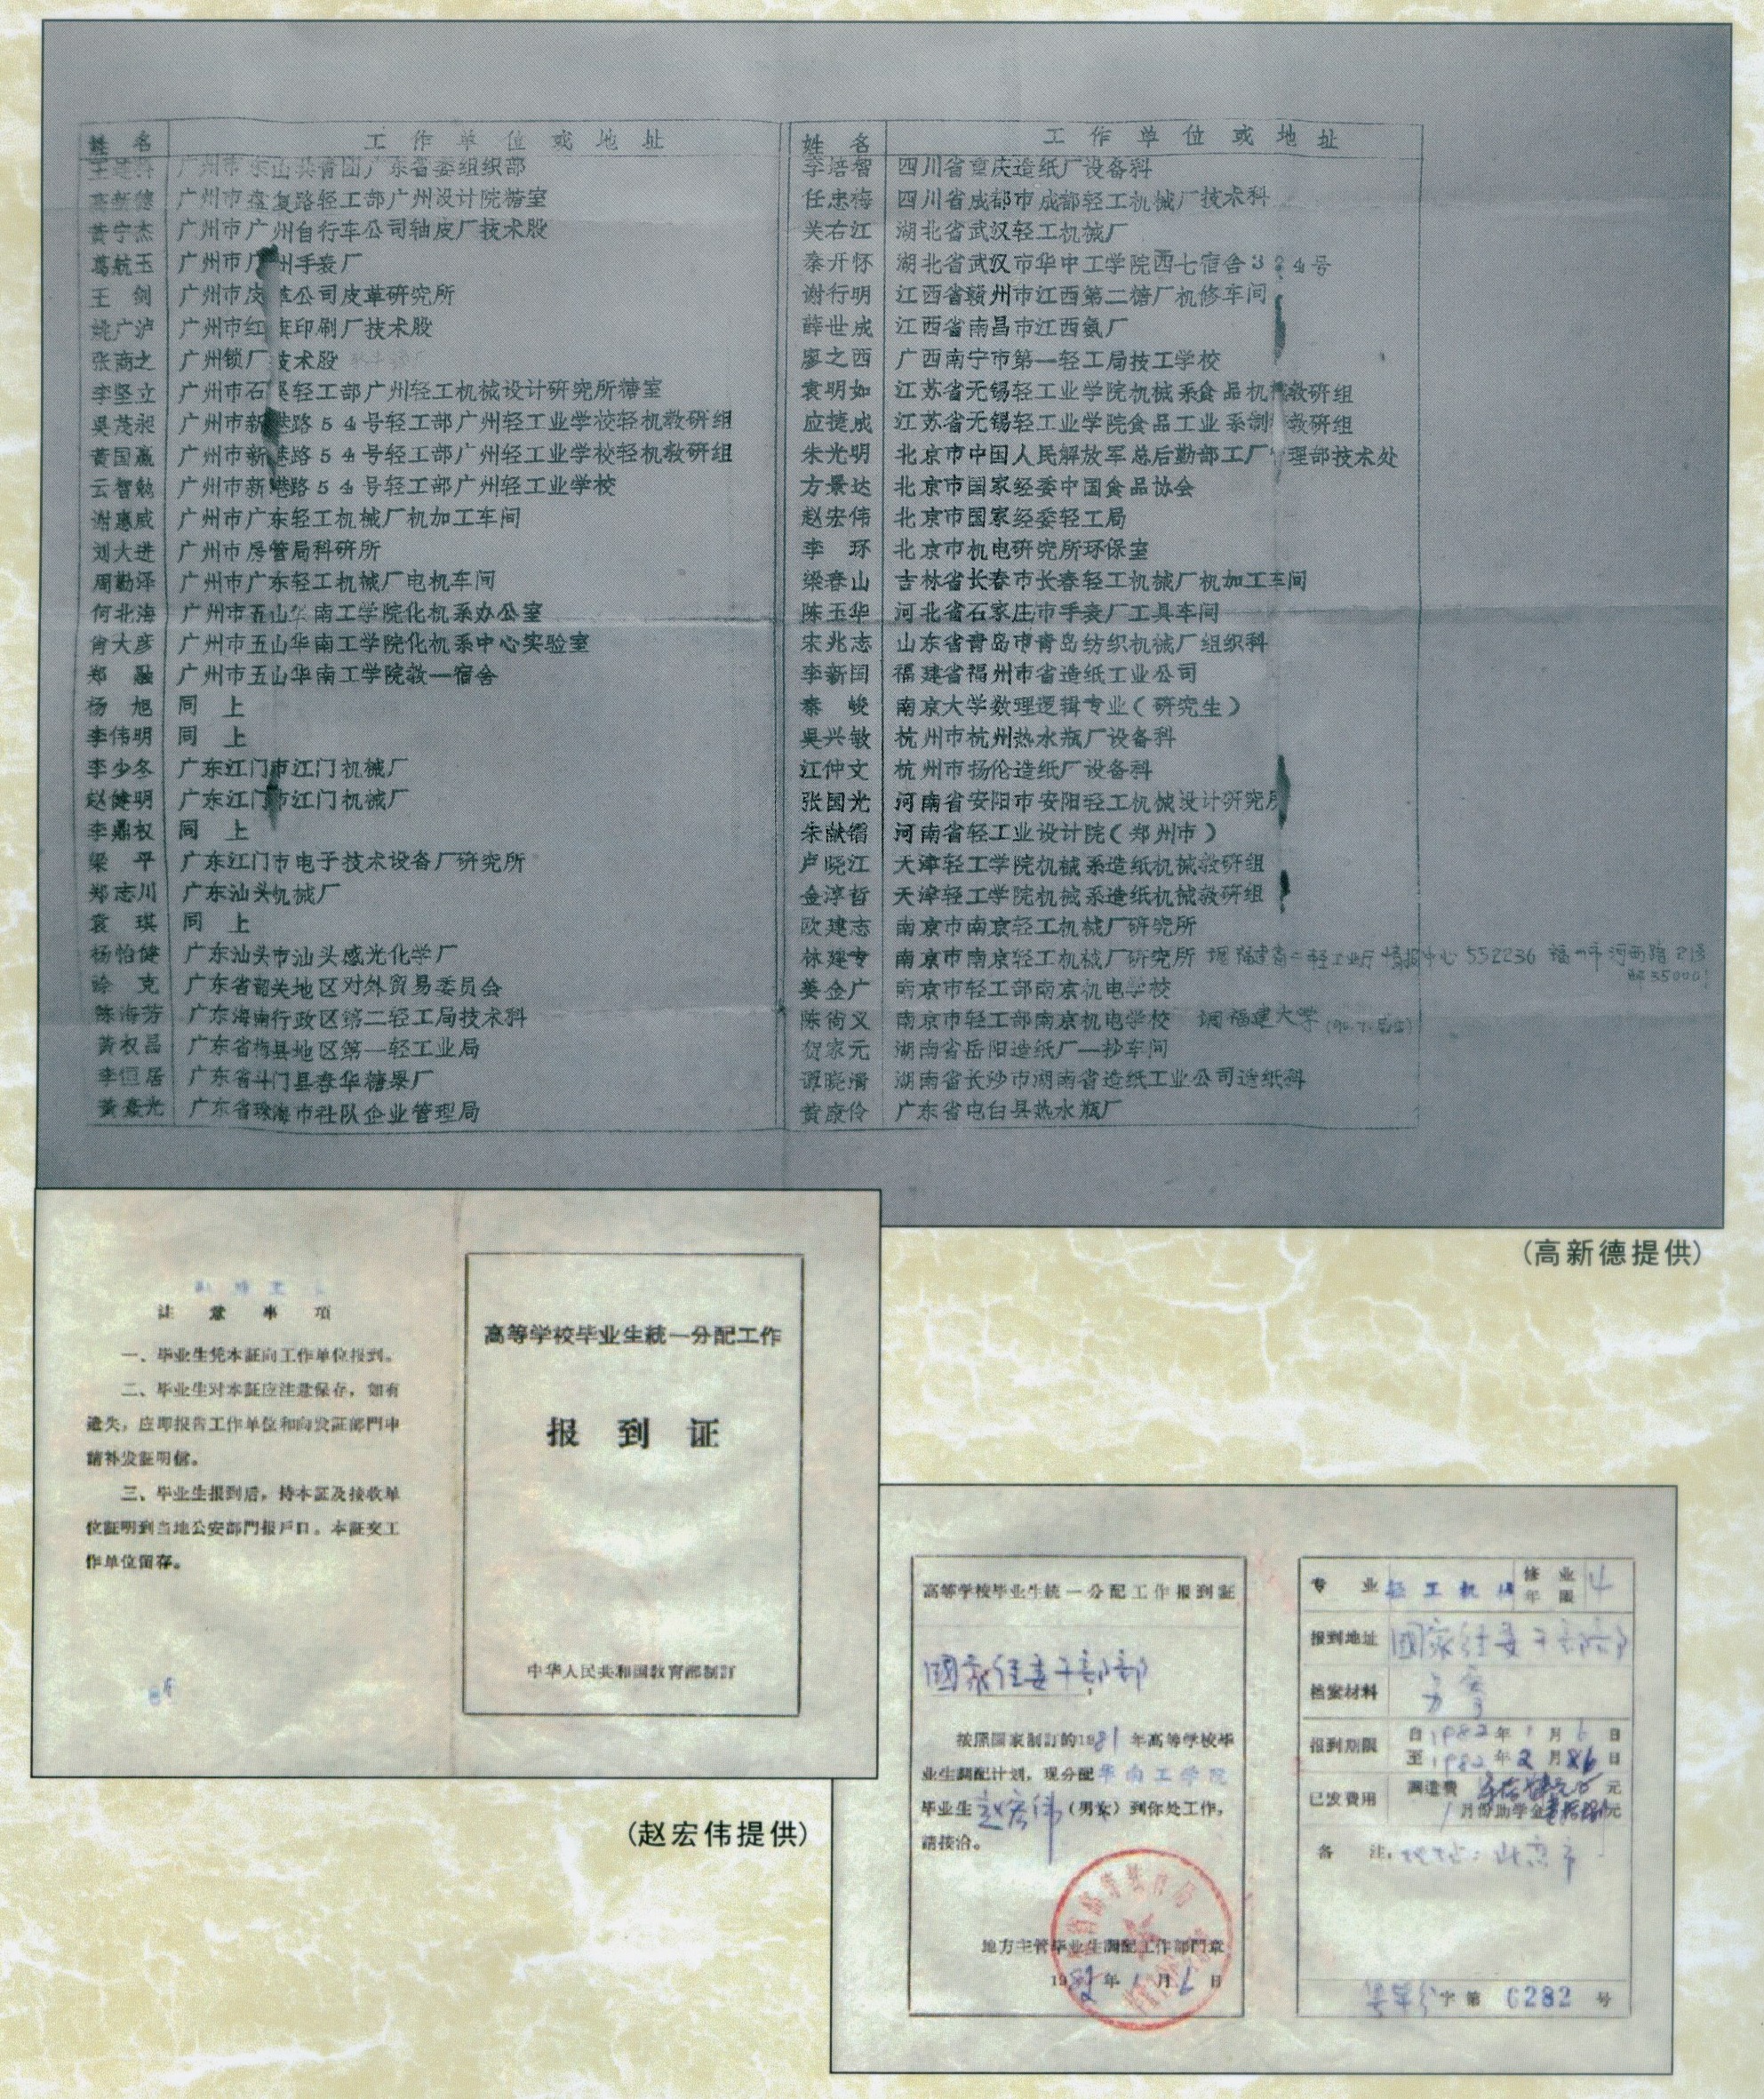 姓 名 工作单位或地址
王建科 广州市东山共青团广东省委组织部
高新德 广州市盘复路轻工部广州设计院糖室
黄宇杰 广州市广州自行车公司轴皮厂技术股
葛航玉 广州市广州手表厂
王 剑 广州市皮革公司皮革研究所
姚广泸 广州市红旗印刷厂技术股
张商之 广州锁厂技术股
李坚立 广州市石 轻工部广州轻工机械设计研究所糖室
吴茂昶 广州市新港路54号轻工部广州轻工业学校轻机教研组
黄国赢 广州市新港路54号轻工部广州轻工业学校轻机教研组
云智勉 广州市新港路54号轻工部广州轻工业学校
谢惠威 广州市广东轻工机械厂机加工车间
刘大进 广州市房管局科研所
周勤泽 广州市广东轻工机械厂电机车间
何北海 广州市五山华南工学院化机系办公室
肖大彦 广州市五山华南工学院化机系中心实验室
郑 融 广州市五山华南工学院教一宿舍
杨 旭 同 上
李伟明 同 上
李少冬 广东江门市江门机械厂
赵健明 广东江门市江门机械厂
李鼎权 同 上
梁 平 广东江门市电子技术设备厂研究所
郑志川 广东汕头机械厂
袁 琪 同 上
杨怡健 广东汕头市汕头感光化学厂
克 广东省韶关地区对外贸易委员会
陈海芳 广东海南行政区第二轻工局技术科
黄权昌 广东省梅县地区第一轻工业局
李恒居 广东省斗门县春华糖果厂
黄豪光 广东省珠海市社队企业管理局
姓 名 工作单位或地址
李培智 四川省重庆造纸厂设备科
任忠梅 四川省成都市成都轻工机械厂技术科
关右江 湖北省武汉轻工机械厂
秦开怀 湖北省武汉市华中工学院西七宿舍324号
谢行明 江西省赣州市江西第二糖厂机修车间
薛世成 江西省南昌市江西氨厂
廖之西 广西南宁市第一轻工局技工学校
袁明如 江苏省无锡轻工业学院机械系食品机械教研组
应捷成 江苏省无锡轻工业学院食品工业系制 教研组
朱光明 北京市中国人民解放军总后勤部工厂管理部技术处
方景达 北京市国家经委中国食品协会
赵宏伟 北京市国家经委轻工局
李 环 北京市机电研究所环保室
梁春山 吉林省长春市长春轻工机械厂机加工车间
陈玉华 河北省石家庄市手表厂工具车间
宋兆志 山东省青岛市青岛纺织机械厂组织科
李新国 福建省福州市省造纸工业公司
秦 峻 南京大学数理逻辑专业(研究生)
吴兴敏 杭州市杭州热水瓶厂设备科
江仲文 杭州市扬伦造纸厂设备科
张国光 河南省安阳市安阳轻工机械设计研究所
朱献镏 河南省轻工业设计院(郑州市)
卢晓江 天津轻工学院机械系造纸机械教研组
金淳哲 天津轻工学院机械系造纸机械教研组
欧建志 南京市南京轻工机械厂研究所
林建专 南京市南京轻工机械厂研究所 现福建省二轻工业厅情报中心 552236 福州市河西路
姜金广 南京市轻工部南京机电学校
陈尚义 南京市轻工部南京机电学校 调福建大学
贺家元 湖南省岳阳造纸厂一抄车间
谭晓滑 湖南省长沙市湖南省造纸工业公司造纸科
黄康伶 广东省电白县热水瓶厂
(高新德提供)
注意事项
一、毕业生凭本証向工作单位报到。
二、毕业生对本証应注意保存,如有
遗失,应即报告工作单位和向发証部門申
請补发証明信。
三、毕业生报到后,持本証及接收单
位証明到当地公安部門报戶口。本証交工
作单位留存。
高等学校毕业生統一分配工作
报到证
中华人民共和国教育部制訂
(赵宏伟提供)
高等学校毕业生統一分配工作报到証
國家经委干部部
按照国家制訂的1981年高等学校毕
业生調配计划,现分配华南工学院
毕业生赵宏伟(男女)到你处工作,
請接洽。
地方主管毕业生調配工作部門章
1982年1月6日
专业 轻工机械 修业年限 4
报到地址 國家经委干部部
档案材料 另寄
报到期限 自1982年1月6日
至1982年2月86日
已发费用 調遣费 元
1月份助学金 元
备 注: 地址:北京市
字第 6282 号